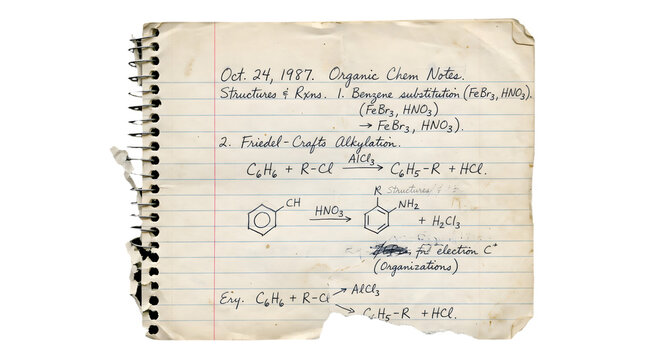 Oct. 24, 1987. Organic Chem Notes.
Structures & Rxns. 1. Benzene substitution (FeBr₃, HNO₃).
(FeBr₃, HNO₃)
→ FeBr₃, HNO₃).
2. Friedel-Crafts Alkylation.
C₆H₆ + R-Cl AlCl₃ → C₆H₅-R + HCl.
R Structures
CH HNO₃ → NH₂
+ H₂Cl₃
for election C⁺
(Organizations)
Ery. C₆H₆ + R-Cl → AlCl₃
→ C₆H₅-R + HCl.